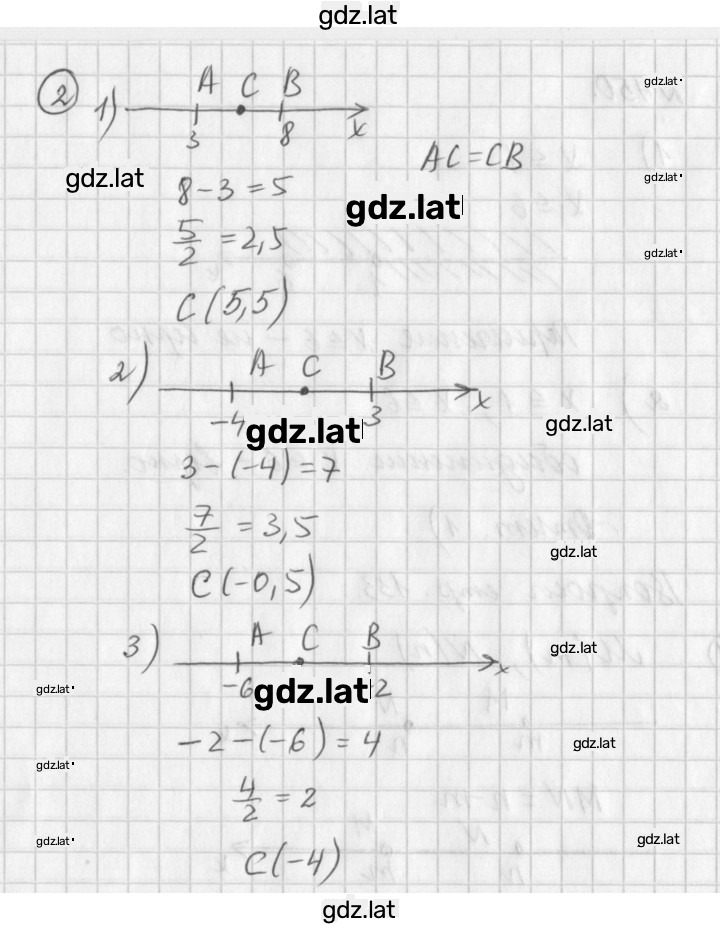 gdz.lat
2 1) A C B
3 8 x
gdz.lat
AC=CB
gdz.lat
gdz.lat
8-3=5
gdz.lat
5/2 =2,5
gdz.lat
C(5,5)
2) A C B
-4 3 x
gdz.lat
gdz.lat
3-(-4)=7
7/2 =3,5
gdz.lat
C(-0,5)
3) A C B
gdz.lat
-6 -2 x
gdz.lat
gdz.lat
-2-(-6)=4
gdz.lat
gdz.lat
4/2 =2
gdz.lat
gdz.lat
C(-4)
gdz.lat